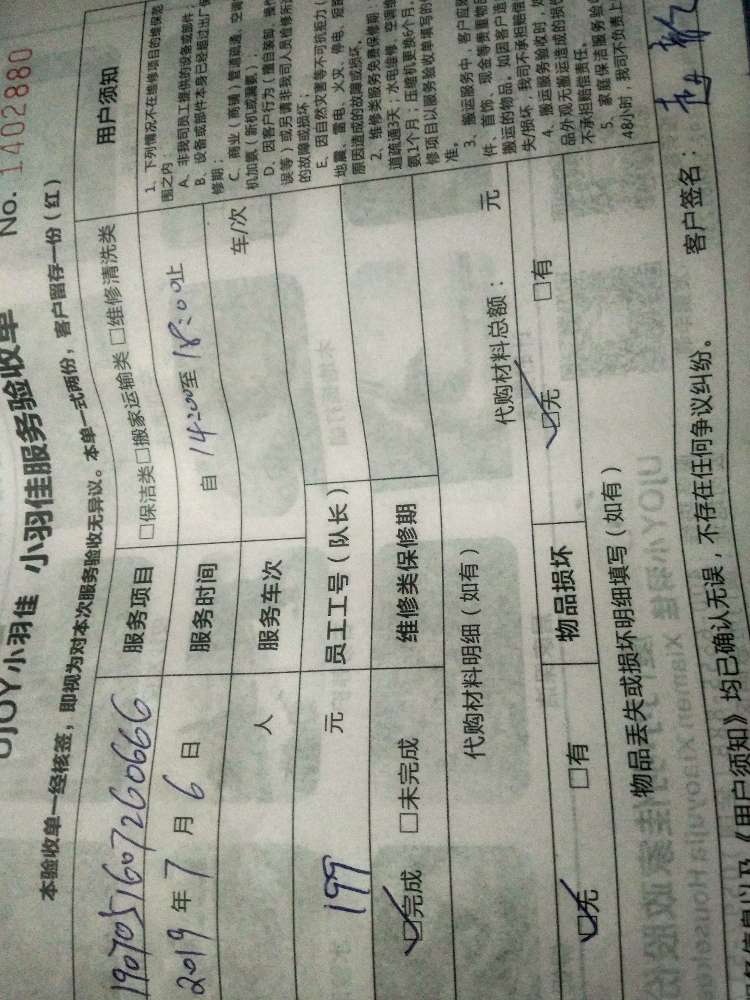 UJOY小羽佳 小羽佳服务验收单
No. 1402880
本验收单一经核签，即视为对本次服务验收无异议。本单一式两份，客户留存一份（红）
1907051607260666 服务项目 □保洁类□搬家运输类 □维修清洗类
2019年7月6日 服务时间 自14:00至18:00止
人 服务车次 车/次
199 元 员工工号（队长）
☑完成 □未完成 维修类保修期
代购材料明细（如有） 代购材料总额： 元
☑无 □有 物品损坏 ☑无 □有
物品丢失或损坏明细填写（如有）
用户须知
1、下列情况不在维修项目的维保范
围之内：
A、非我司员工提供的设备或部件；
B、设备或部件本身已经超过出厂保
修期；
C、商业（商铺）管道疏通、空调
机加氨（新机或漏氨）；
D、因客户行为（擅自装卸、操作
误等）或另请非我司人员检修所
的故障或损坏；
E、因自然灾害等不可抗拒力（
地震、雷电、火灾、停电、短路
原因造成的故障或损坏。
2、维修类服务免费保修期：
道疏通3天；水电维修、空调维
氨1个月；压缩机更换6个月，
修项目以服务验收单填写的
准。
3、搬运服务中，客户应
件、首饰、现金等贵重物品
搬运的物品。如因客户造
失/损坏，我司不承担赔偿
4、搬运服务验收时，如
品外观无搬运造成的损
不承担赔偿责任。
5、家庭保洁服务验
48小时，我司不负责上
《用户须知》均已确认无误，不存在任何争议纠纷。 客户签名：